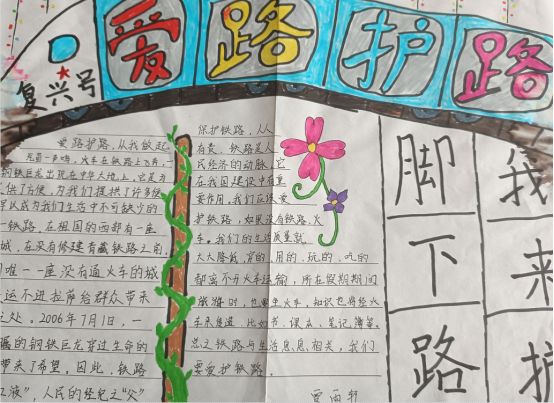 爱路护路
复兴号
爱路护路，从我做起
钢铁巨龙出现在中华大地上，它是为
供了方便，为我们提供了许多快
足以成为我们生活中不可缺少的
一铁路，在祖国的西部有一座
城，在没有修建青藏铁路之前，
唯一一座没有通火车的城
运不进我前给群众带来
之处。2006年7月1日，一
的钢铁巨龙穿过生命的
带来了希望。因此，铁路
血液”，人民的经纪之“父”
保护铁路，人人
有责，铁路是人
民经济的动脉，它
在我国建设中有重
要作用，我们应该爱
护铁路，如果没有铁路，火
车，我们的生活质量就
大大降低，穿的、用的、玩的、吃的
都离不开火车运输，所在假期期间
旅游时，也要坐火车，知识也将经火
车来传递，比如书、课本、笔记簿等。
总之铁路与生活息息相关，我们
要爱护铁路。
脚下路
我来护